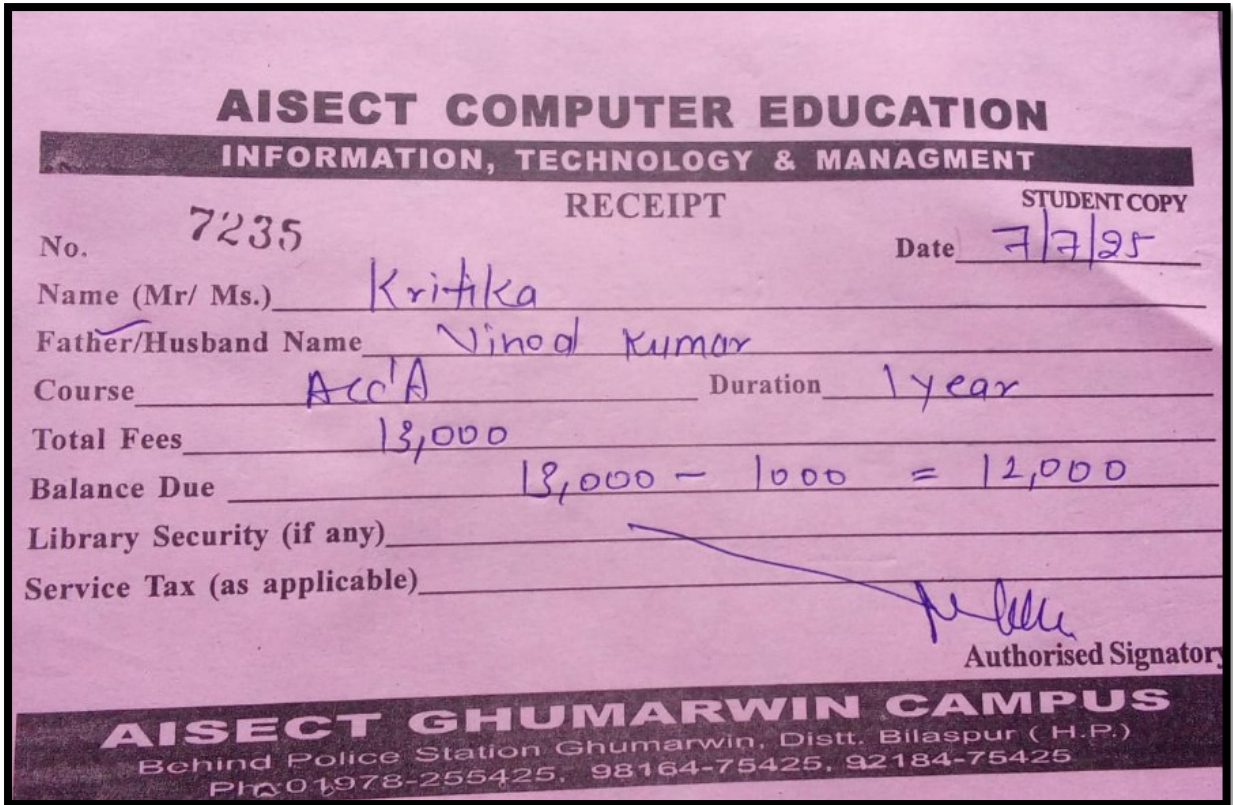 AISECT COMPUTER EDUCATION
INFORMATION, TECHNOLOGY & MANAGMENT
RECEIPT
STUDENT COPY
No. 7235
Date 7/7/25
Name (Mr/ Ms.) Kritika
Father/Husband Name Vinod Kumar
Course Acc'A Duration 1 year
Total Fees 13,000
Balance Due 13,000 - 1000 = 12,000
Library Security (if any)
Service Tax (as applicable)
Authorised Signatory
AISECT GHUMARWIN CAMPUS
Behind Police Station Ghumarwin, Distt. Bilaspur ( H.P.)
Ph.:01978-255425, 98164-75425, 92184-75425